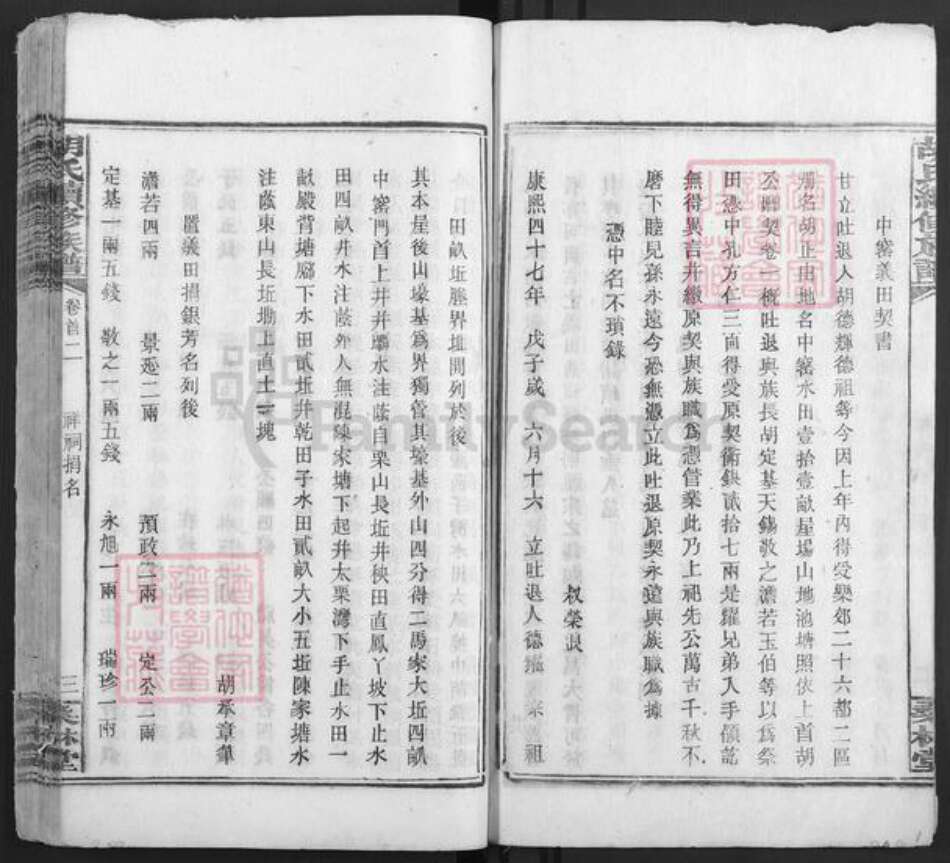 中窰義田契書
甘立吐退人胡德輝德祖等今因上年內得受欒郊二十六都二區
冊名胡正由地名中窰水田壹拾壹畝屋場山地池塘照依上首胡
丕卿契卷一概吐退與族長胡定基天錫敬之澹若玉伯等以爲祭
田憑中孔方仁三面得受原契價銀貳拾七兩是耀兄弟入手領訖
無得異言并繳原契與族職爲憑管業此乃上祀先公萬古千秋不
磨下睦兒孫永遠今恐無憑立此吐退原契永遠與族職爲據
憑中名不瑣錄
叔榮
康熙四十七年 戊子歲 六月十六 立吐退人德 祖
田畝坵塅界址開列於後
其本屋後山壕基爲界獨管其壕基外山四分得二馬家大坵四畝
中窰門首上井井壩水注蔭自栗山長坵井秧田直鳳丫坡下止水
田四畝井水注蔭外人無混陳家塘下起并太栗灣下手止水田一
畝嚴背塘廟下水田貳坵井乾田子水田貳畝大小五坵陳家塘水
注蔭東山長坵墈上直土一塊
胡承章單
置義田捐銀芳名列後
澹若四兩 景 二兩 預政二兩 定公二兩
定基一兩五錢 敬之一兩五錢 永旭一兩 瑞珍一兩
胡氏續修族譜
卷首二
祥祠捐名
三
林堂
胡氏續修族譜
林堂
FamilySearch